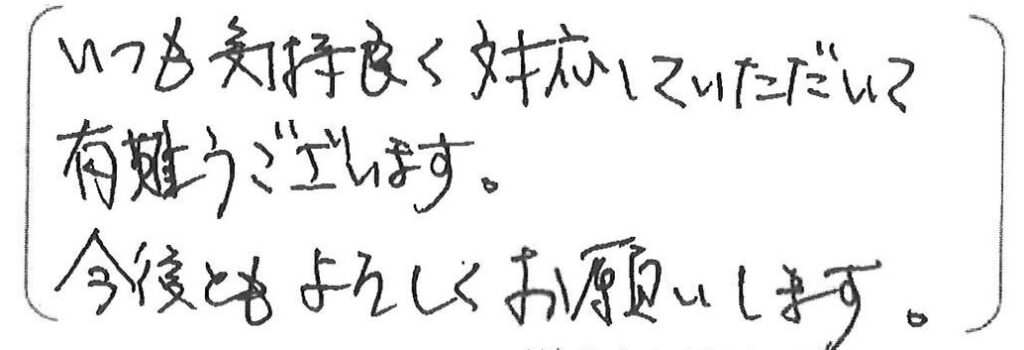 いつも気持良く対応していただいて
有難うございます。
今後ともよろしくお願いします。